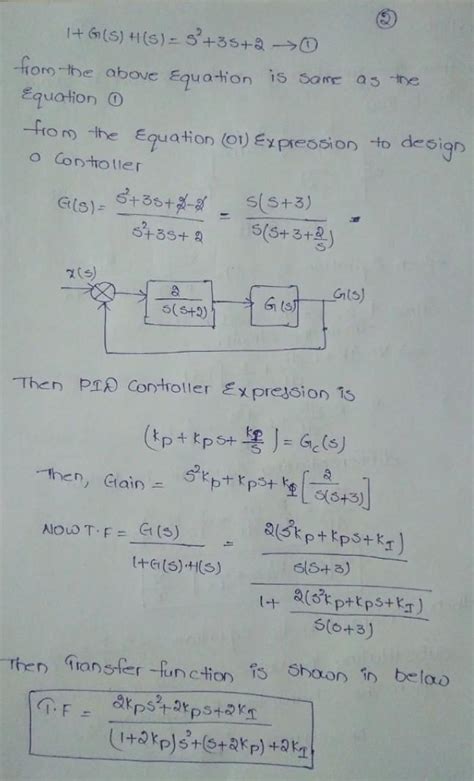 ②
1+G(s)+1(s) = s²+3s+2 → ①
from the above Equation is same as the
Equation ①
from the Equation (01) Expression to design
a Controller
G(s) = (s²+3s+2-2)/(s²+3s+2) = s(s+3)/(s(s+3+2/s)) -
x(s)
2/(s(s+2))
G(s)
G(s)
Then PID Controller Expression is
(kp+kps+kI/s) = Gc(s)
Then, Gain = s²kp+kps+kI[2/(s(s+3))]
NOW T.F = G(s)/(1+G(s)·H(s)) = (2(s²kp+kps+kI)/(s(s+3)))/(1+2(s²kp+kps+kI)/(s(s+3)))
Then Transfer-function is shown in below
T.F = (2kps²+2kps+2kI)/((1+2kp)s²+(s+2kp)+2kI)